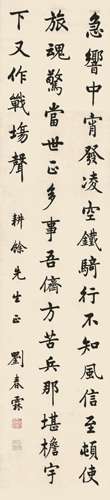 急響中宵發凌空鐵騎行不知風信至頓使
旅魂驚當世正多事吾儕方苦兵那堪檐宇
下又作戰場聲
耕餘先生正 劉春霖